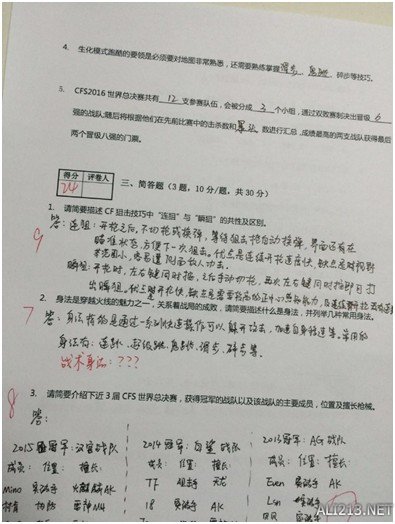 4. 生化模式跑酷的要领是必须要对地图非常熟悉，还需要熟练掌握滑步、鬼跳、碎步等技巧。
5. CFS2016世界总决赛共有12支参赛队伍，会被分成3个小组，通过双败赛制决出晋级6
强的战队；随后将根据他们在先前比赛中的击杀数和算法数进行汇总，成绩最高的两支战队获得最后
两个晋级八强的门票。
得分 评卷人
24
三、简答题（3题，10分/题，共30分）
1. 请简要描述CF狙击技巧中“连狙”与“瞬狙”的共性及区别。
答：连狙：开枪之后，不切枪或换弹，等待狙击枪自动换弹，界面还在
瞄准状态，方便下一次狙击。优点是连续开枪速度快，缺点是时视野
9
瞬狙：开枪时，左右键同时按，之后手动切枪，再次左右键同时按即可打
出瞬狙。优点是开枪快，缺点是需要
2. 身法是穿越火线的魅力之一，关系着战局的成败，请简要描述什么是身法，并列举几种常用身法。
7
答：身法指的是通过一系列快速操作可以躲开攻击，加速自身移速等。常用的
身法有：连跳、超级跳、鬼跳、滑步、碎步等。
战术身法：？？？
3. 请简要介绍下近3届CFS世界总决赛，获得冠军的战队以及该战队的主要成员，位置及擅长枪械。
8
答：
2015冠军：汉宫战队 2014冠军：白鲨战队 2013冠军：AG战队
成员： 位置： 擅长： 成员： 位置： 擅长： 成员： 位置： 擅长：
Mino 突破手 火麒麟AK TF 狙击手 Even 突破手 AK
18 突破手 AK
ALI213.NET